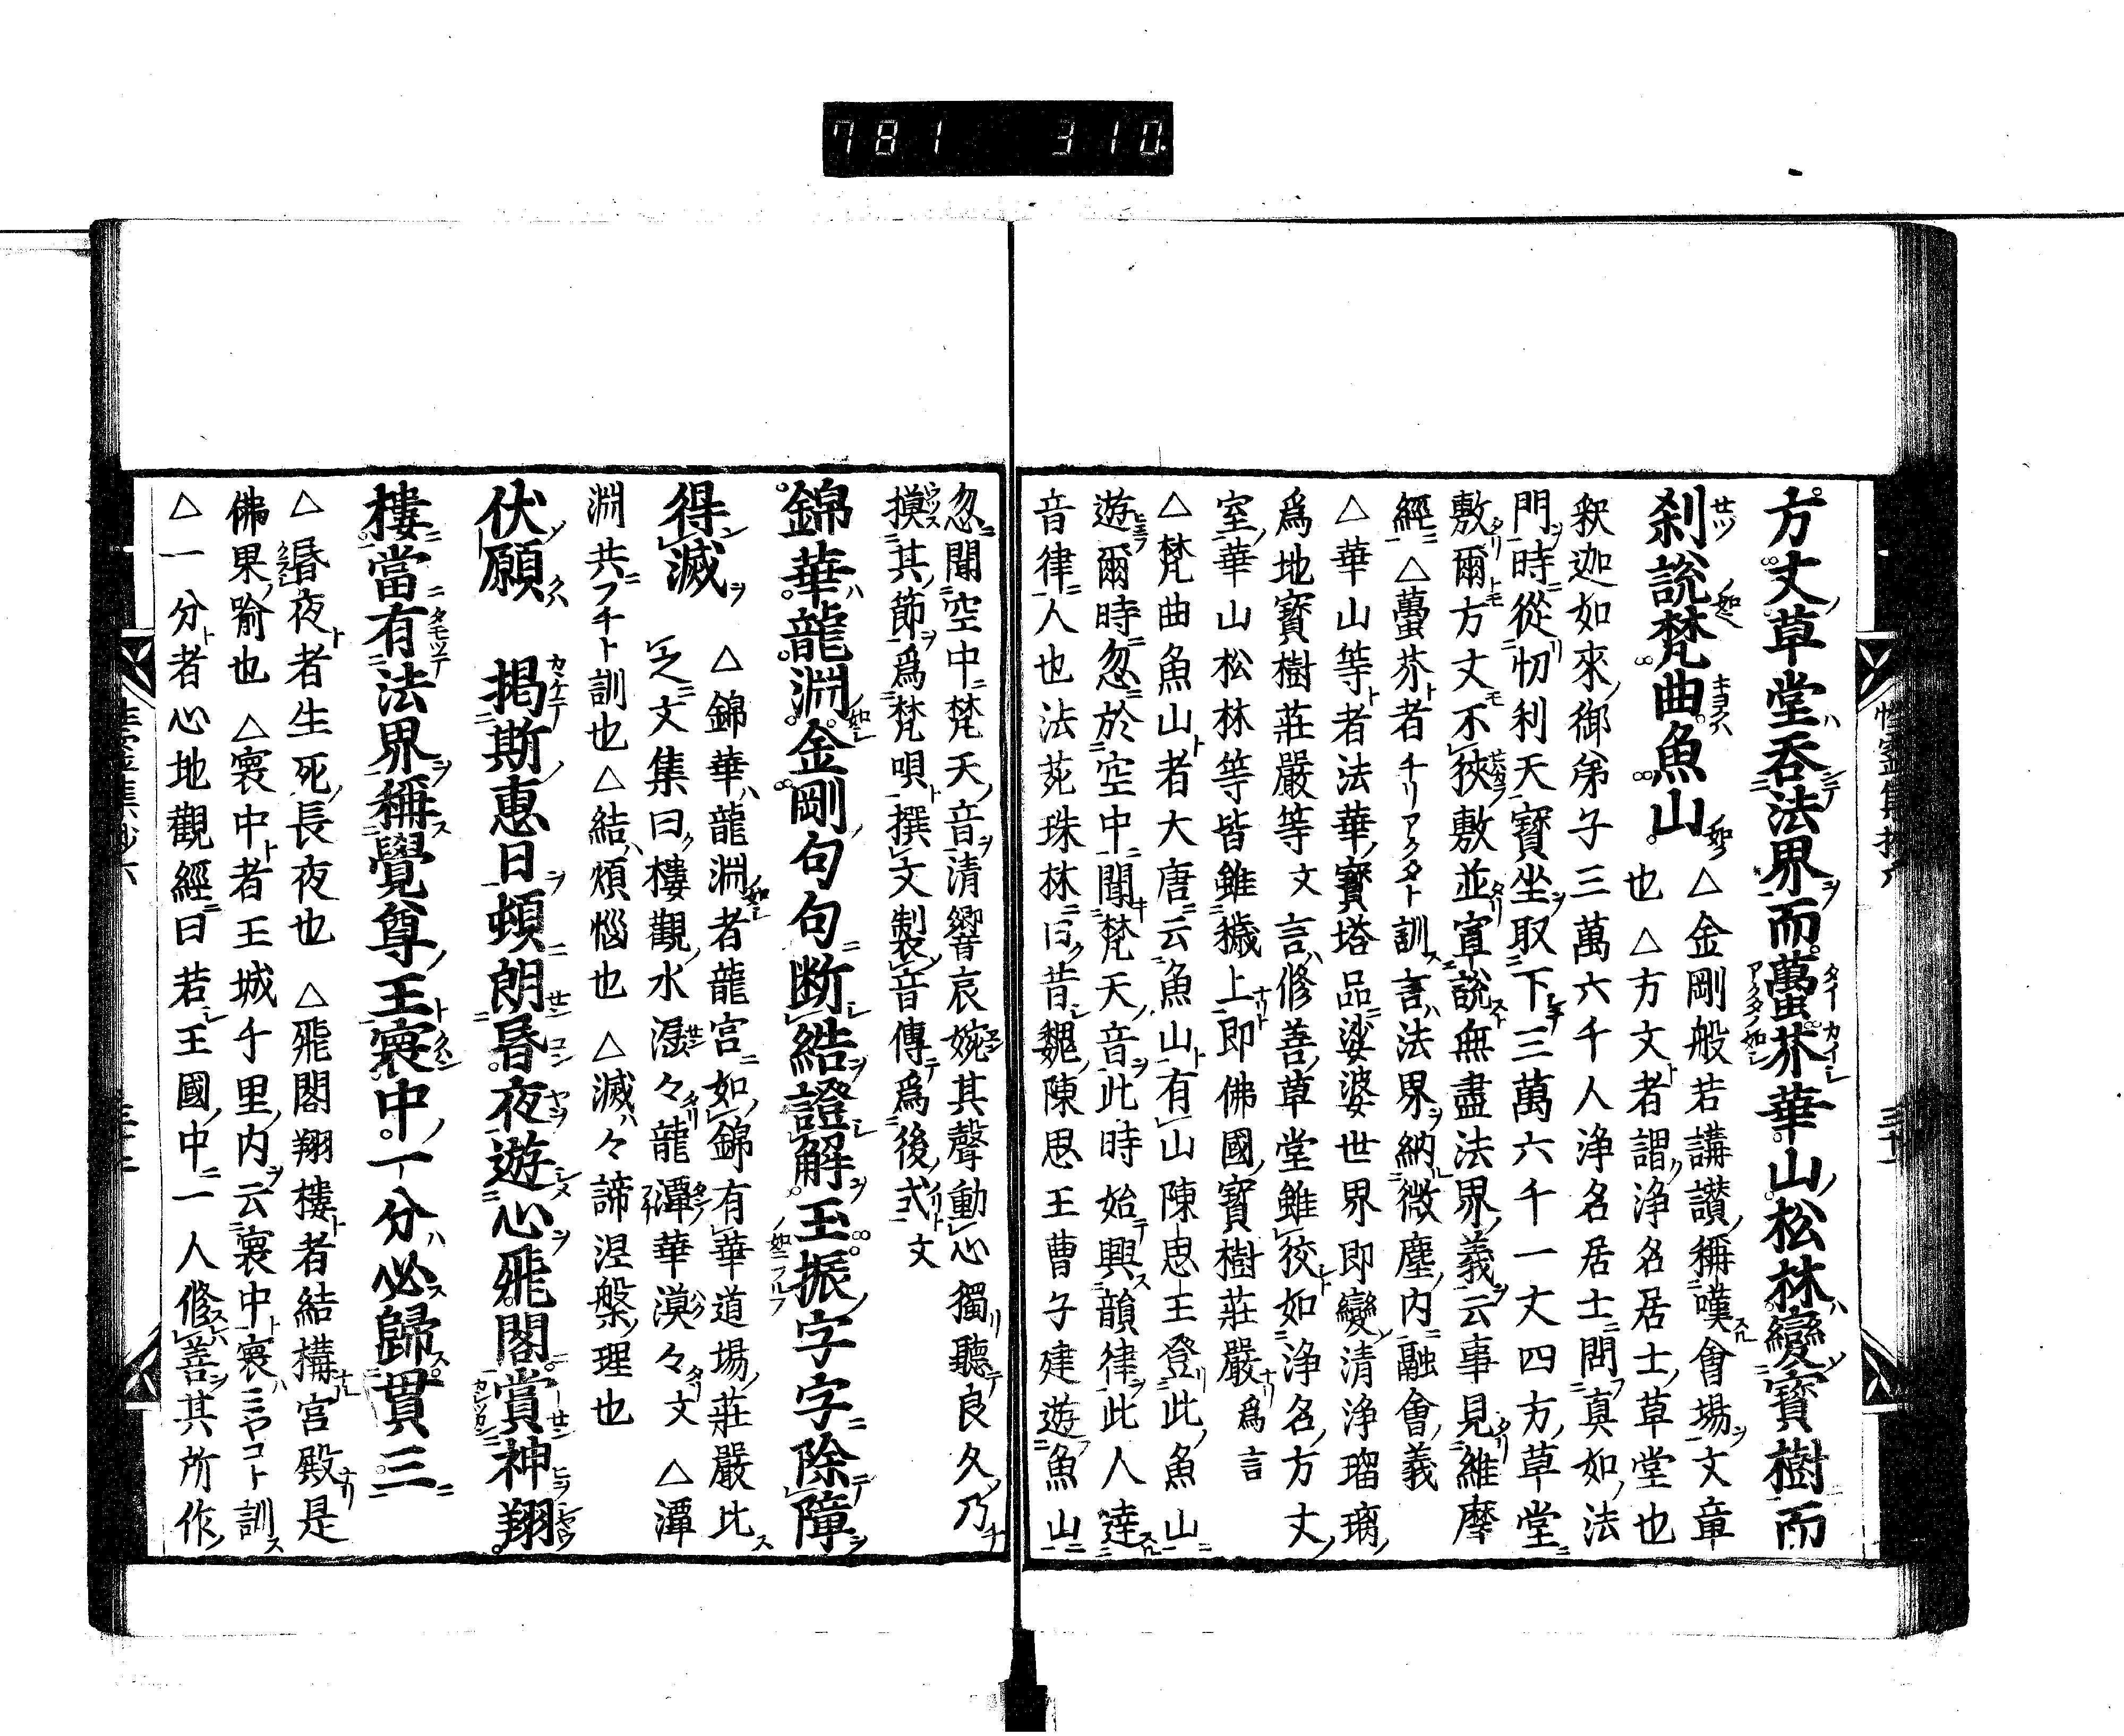 781 310
方丈草堂呑法界而蠆芥華山松林變寳樹而
刹說梵曲魚山 △金剛般若講讃稱嘆會場文章
也 △方丈者謂浄名居士草堂也
釈迦如來御弟子三萬六千人浄名居士問真如法
門時從忉利天寳坐取下三萬六千一丈四方草堂
敷爾方丈不狹敷並宣說無盡法界義云事見維摩
經 △蠆芥者チリアクタト訓言法界納微塵内融會義
△華山等者法華寳塔品娑婆世界即變清浄瑠璃
爲地寳樹莊嚴等文言修善草堂雖狡如浄名方丈
室華山松林等皆雖穢土即佛國寳樹莊嚴爲言
△梵曲魚山者大唐云魚山有山陳思王登此魚山
遊爾時忽於空中聞梵天音此時始興韻律此人達
音律人也法苑珠林曰昔魏陳思王曹子建遊魚山
忽聞空中梵天音清響哀婉其聲動心獨聽良久乃
摸其節爲梵唄撰文製音傳爲後式文
錦華龍淵金剛句句断結證解玉振字字除障
得滅 △錦華龍淵者龍宮如錦有華道場莊嚴比
之文集曰樓觀水濕々龍潭華漠々文 △潭
淵共フチト訓也△結煩惱也 △滅々諦涅槃理也
伏願 掲斯惠日頓朗昏夜遊心飛閣賞神翔
樓當有法界稱覺尊王寰中一分必歸貫三
△昬夜者生死長夜也 △飛閣翔樓者結構宮殿是
佛果喻也 △寰中者王城千里内云寰中寰ミヤコト訓
△一分者心地觀經曰若王國中一人修善其所作